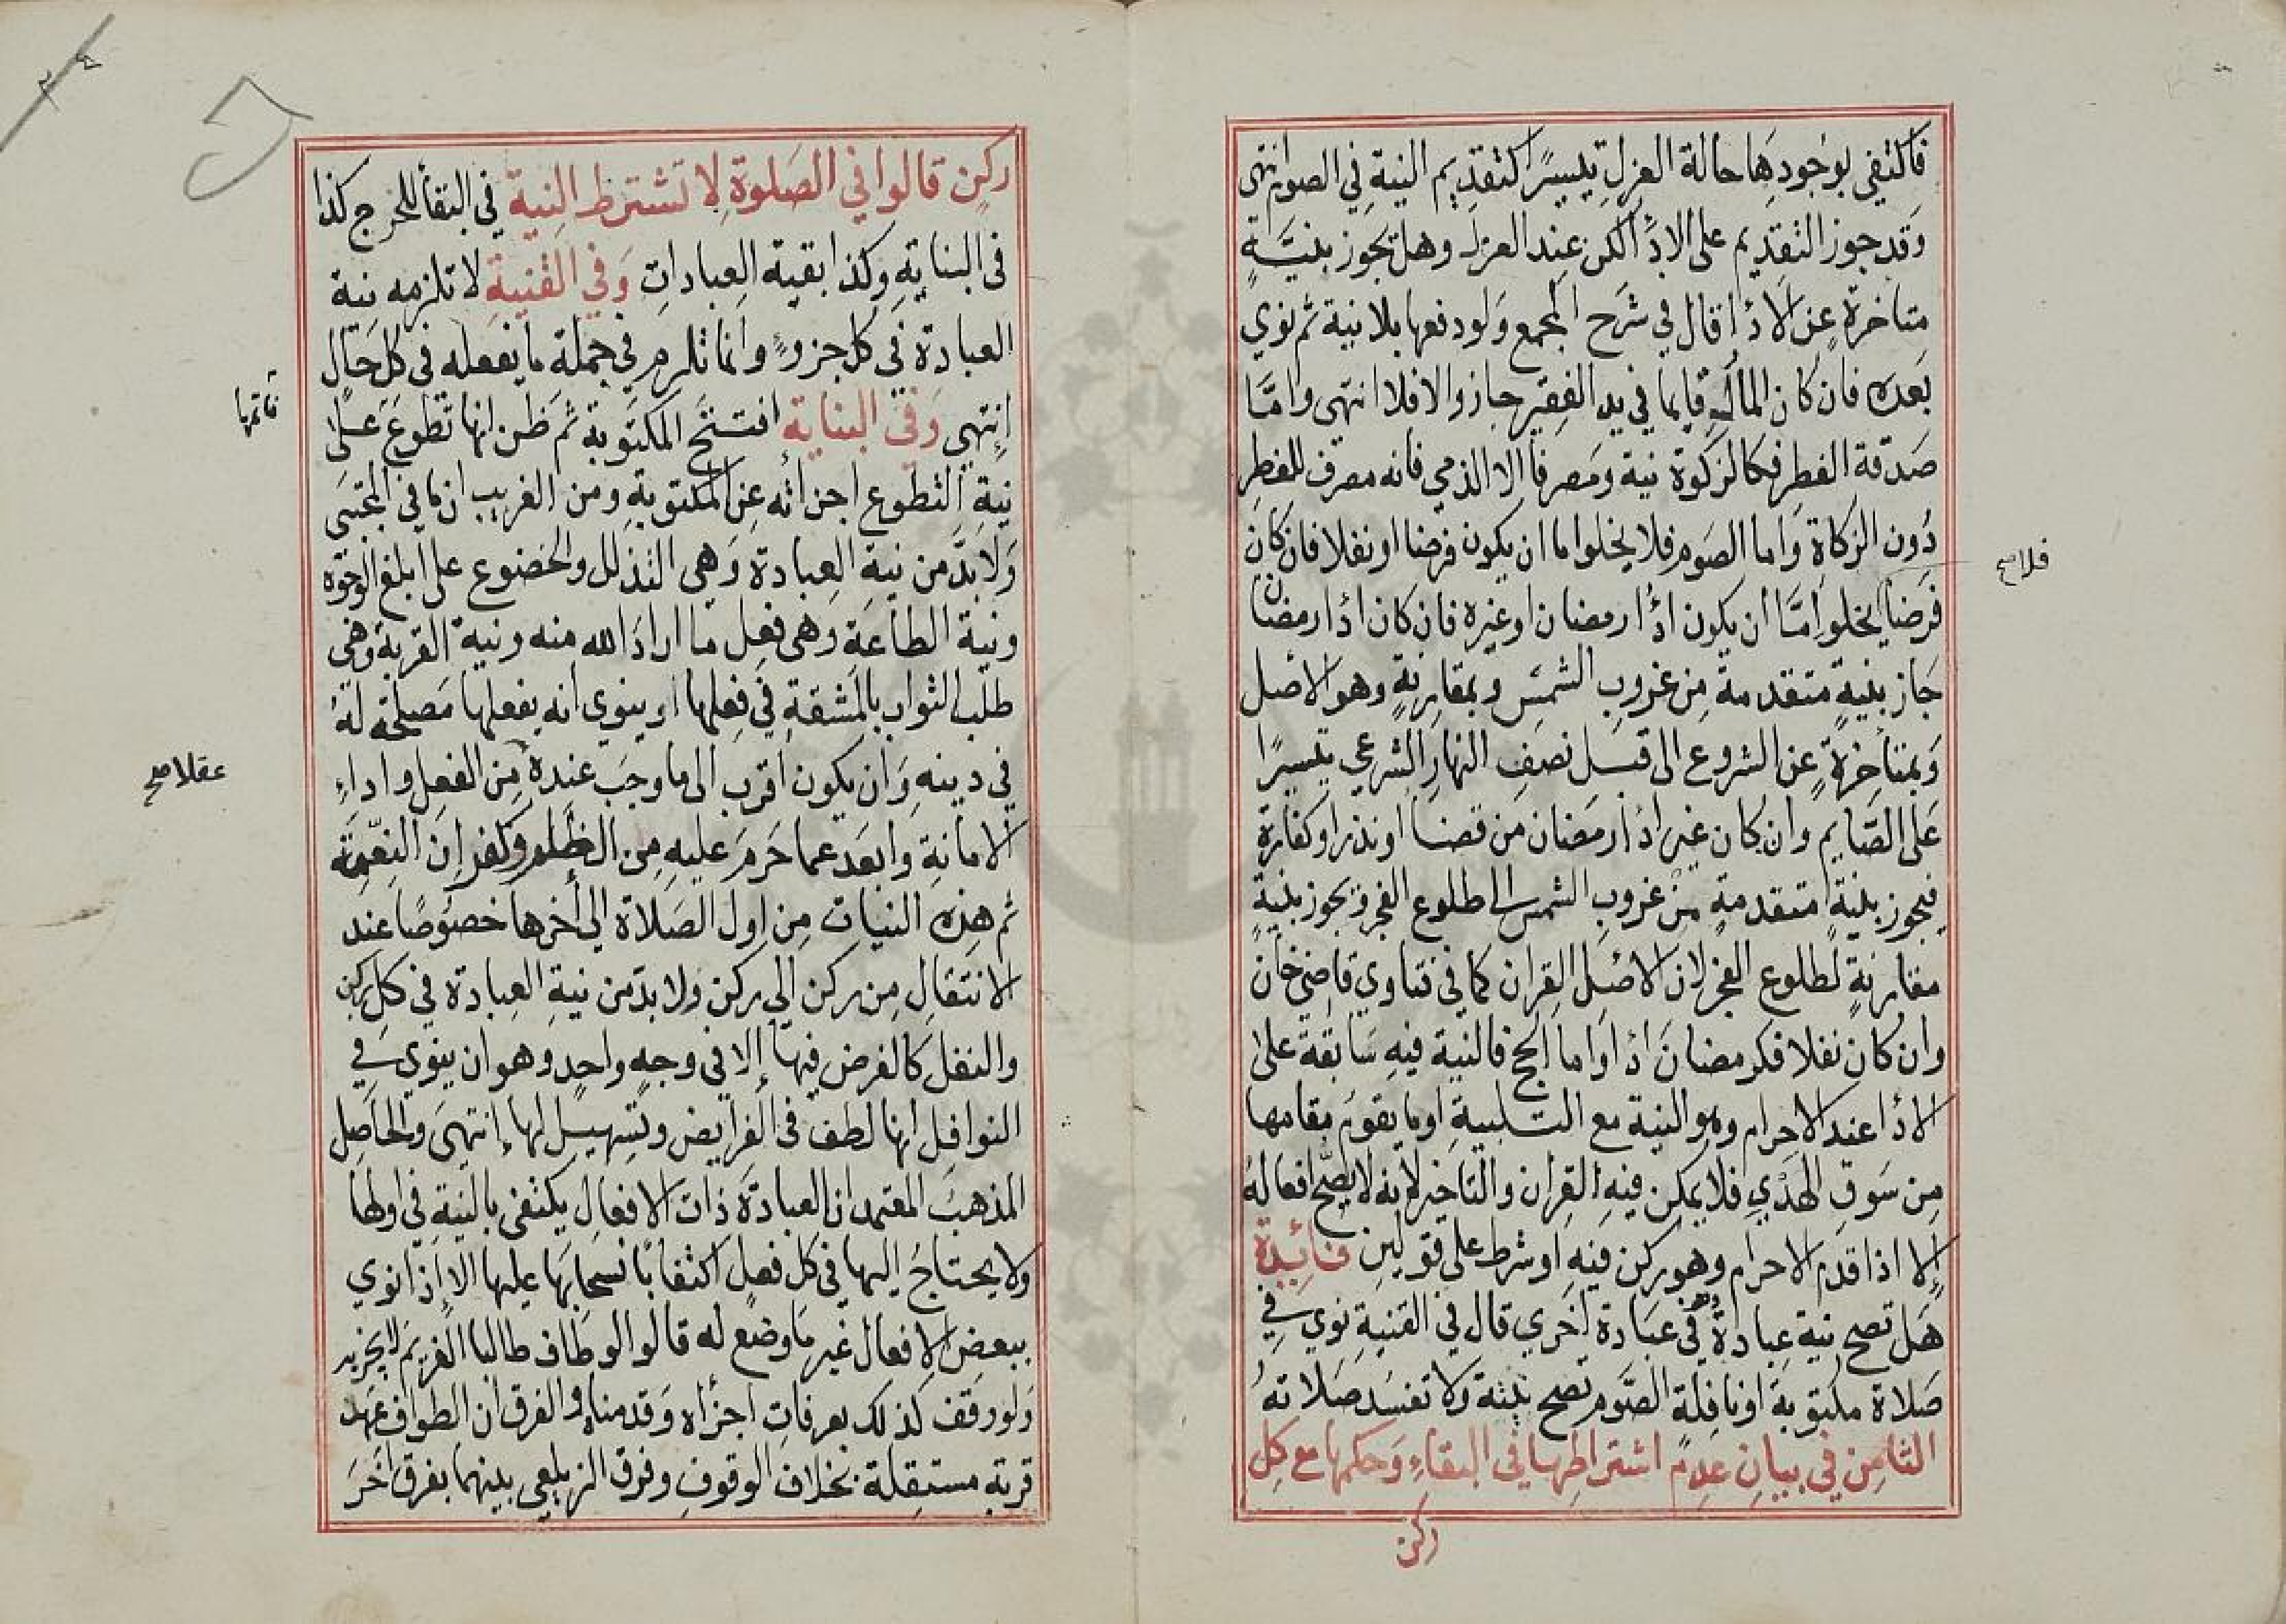 فاكتفى بوجودها حالة العزل تيسيرا كتقديم النية في الصوم انتهى
وقد جوز التقديم على الادا لكن عند العزل وهل تجوز بنية
متاخرة عن الادا قال في شرح المجمع ولو دفعها بلا نية ثم نوي
بعده فان كان المال قايما في يد الفقير جاز والا فلا انتهى واما
صدقة الفطر فكالزكوة نية ومصرفا الا الذمي فانه مصرف للفطر
دون الزكاة واما الصوم فلا يخلوا اما ان يكون فرضا او نفلا فان كان
فرضا يخلوا اما ان يكون ادا رمضان او غيره فان كان ادا رمضان
فلا صح
جاز بنية متقدمة من غروب الشمس وبمقارنة وهو الاصل
وبمتاخرة عن الشروع الى قبل نصف النهار الشرعي تيسيرا
على الصايم وان كان غير ادا رمضان من قضا او نذر او كفارة
فيجوز بنية متقدمة من غروب الشمس الى طلوع الفجر ويجوز بنية
مقارنة لطلوع الفجر لان الاصل القران كما في فتاوي قاضي خان
وان كان نفلا فكرمضان ادا واما الحج فالنية فيه سابقة على
الادا عند الاحرام وهو النية مع التلبية او ما يقوم مقامها
من سوق الهدي فلا يمكن فيه القران والتاخير لانه لا يصح افعاله
الا اذا قدم الاحرام وهو ركن فيه او شرط على قولين فائدة
هل تصح نية عبادة وهو في عبادة اخري قال في القنية نوي في
صلاة مكتوبة او نافلة الصوم تصح نيته ولا تفسد صلاته
الثامن في بيان عدم اشتراطها في البقاء وحكمها مع كل
ركن
ركن قالوا في الصلوة لا تشترط النية في البقا للحرج كذا
في البناية وكذا بقية العبادات وفي القنية لا تلزمه نية
العبادة في كل جزء وانما تلزم في جملة ما يفعله في كل حال
انتهي وفي البناية افتتح المكتوبة ثم ظن انها تطوع على
فاتمها
نية التطوع اجزاته عن المكتوبة ومن الغريب ان ما في المجتبى
ولا بد من نية العبادة وهي التذلل والخضوع على ابلغ الوجوه
ونية الطاعة وهي فعل ما اراد الله منه ونية القربة وهي
طلب الثواب بالمشقة في فعلها او ينوي انه يفعلها مصلحة له
في دينه وان يكون اقرب الى ما وجب عنده من الفعل واداء
عقلا صح
الامانة وابعد عما حرم عليه من الظلم وكفران النعمة
ثم هذه النيات من اول الصلاة الى اخرها خصوصا عند
الانتقال من ركن الى ركن ولا بد من نية العبادة في كل ركن
والنفل كالفرض فيها الا في وجه واحد وهو ان ينوي في
النوافل انها لطف في الفرايض وتسهيل لها انتهى والحاصل
المذهب المعتمد ان العبادة ذات الافعال يكتفى بالنية في اولها
ولا يحتاج اليها في كل فعل اكتفا بانسحابها عليها الا اذا نوي
ببعض الافعال غير ما وضع له قالوا لو طاف طالبا الغريم لا يجزيه
ولو وقف كذلك بعرفات اجزاه وقدمناه والفرق ان الطواف عهد
قربة مستقلة بخلاف الوقوف وفرق الزيلعي بينهما بفرق اخر